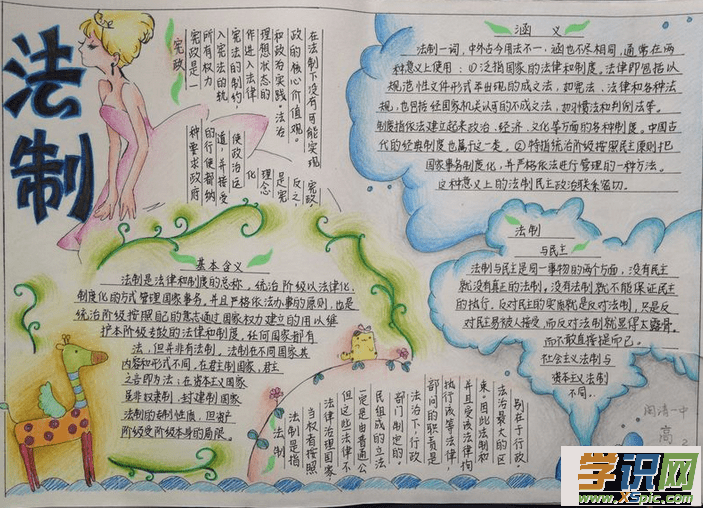 法制
宪政
宪政是一种要求政府
所有权力的行使都纳
入宪法的轨道，并接受
宪法的制约使政治运
作进入法治化
理想状态的理念
和政为实践，法治是宪
政的核心价值观。反之，
在法制下没有可能实现宪政。
涵义
法制一词，中外古今用法不一，涵也不尽相同，通常在两
种意义上使用：①泛指国家的法律和制度。法律即包括以
规范性文件形式并出现的成文法，如宪法，法律和各种法
规，也包括经国家机关认可的不成文法，如习惯法和判例法等。
制度指依法建立起来政治、经济，文化等方面的各种制度。中国古
代的经典制度也属于这一类，②特指统治阶级按照民主原则把
国家事务制度化，并严格依法进行管理的一种方法。
这种意义上的法制民主政治联系密切。
基本含义
法制是法律和制度的总称，统治阶级以法律化，
制度化的方式管理国家事务，并且严格依法办事的原则，也是
统治阶级按照自己的意志通过国家权力建立的用以维
护本阶级专政的法律和制度，任何国家都有
法，但并非有法制，法制在不同国家其
内容和形式不同，在君主制国家，君主
之言即为法；在资本主义国家
法制的专制性质，但资产
阶级受阶级本身的局限。
法制
与民主
法制与民主是同一事物的两个方面，没有民主
就没有真正的法制，没有法制就不能保证民主
的执行，反对民主的实质就是反对法制，只是反
对民主易被人接受，而反对法制就显得太露骨。
而不敢直接提而已。
社会主义法制与
资本主义法制
不同。
法制
法制是指
当权者按照
法律治理国家
但这些法律不
一定是由普通公
民组成的立法
部门制定的。
法治下，行政
部门的职责是
执行该等法律
并且受该法律拘
束。因此法制和
法治最大的区
别在于行政。
高
学识网
www.xspic.com